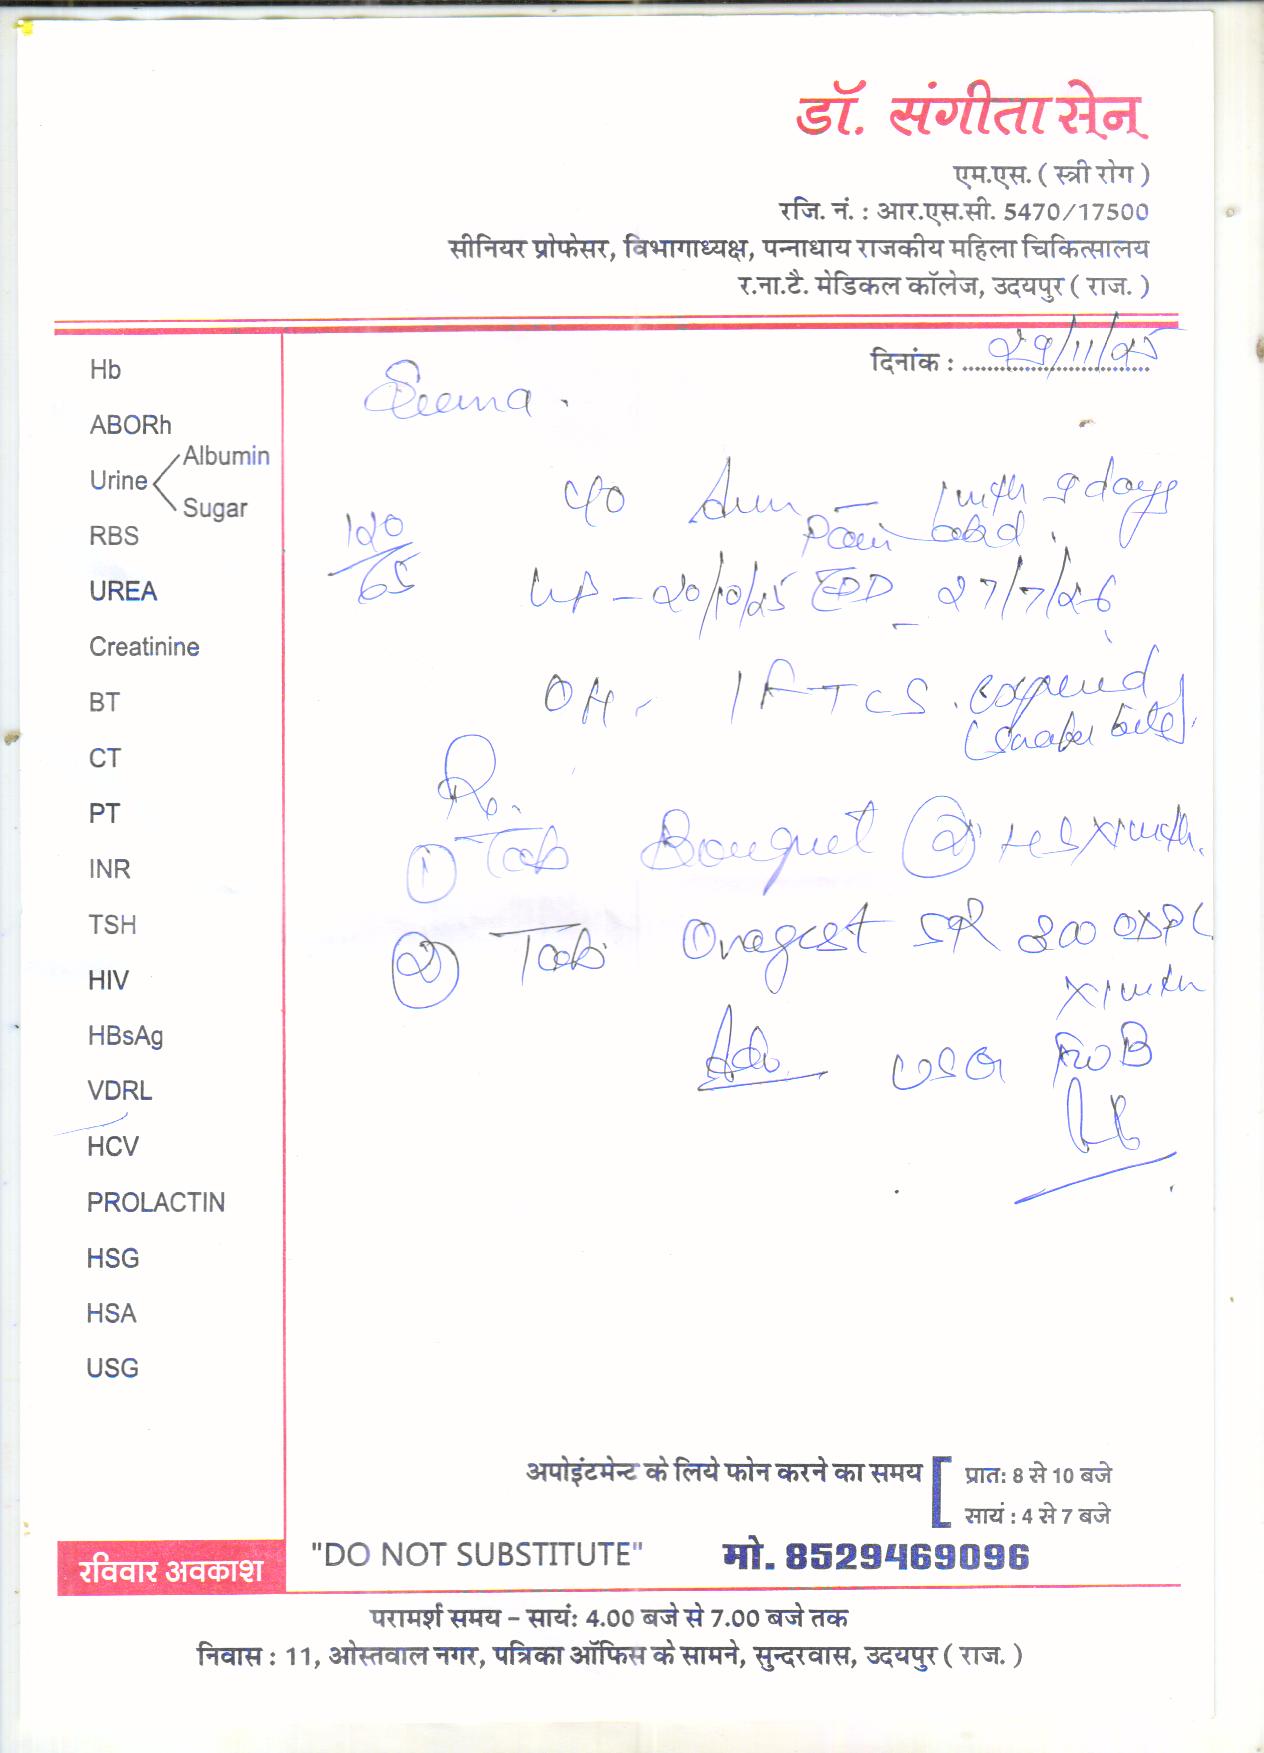 डॉ. संगीता सेन
एम.एस. ( स्त्री रोग )
रजि. नं. : आर.एस.सी. 5470/17500
सीनियर प्रोफेसर, विभागाध्यक्ष, पन्नाधाय राजकीय महिला चिकित्सालय
र.ना.टै. मेडिकल कॉलेज, उदयपुर ( राज. )
दिनांक : 29/11/25
Hb
ABORh
Urine Albumin
Sugar
RBS
UREA
Creatinine
BT
CT
PT
INR
TSH
HIV
HBsAg
VDRL
HCV
PROLACTIN
HSG
HSA
USG
Seema.
120/65
c/o Am — 1 mth 9 days
Pain abd.
LMP – 20/10/25 EDD – 27/7/26
OH – 1 FTCS. expired
(snake bite)
Rx.
① Tab Bouquet @ HS x 1 mth.
② Tab. Oragest SR 300 OD
x 1 mth
Adv. USG FWB
अपोइंटमेन्ट के लिये फोन करने का समय [ प्रातः 8 से 10 बजे
सायं : 4 से 7 बजे
रविवार अवकाश
"DO NOT SUBSTITUTE" मो. 8529469096
परामर्श समय – सायं: 4.00 बजे से 7.00 बजे तक
निवास : 11, ओस्तवाल नगर, पत्रिका ऑफिस के सामने, सुन्दरवास, उदयपुर ( राज. )